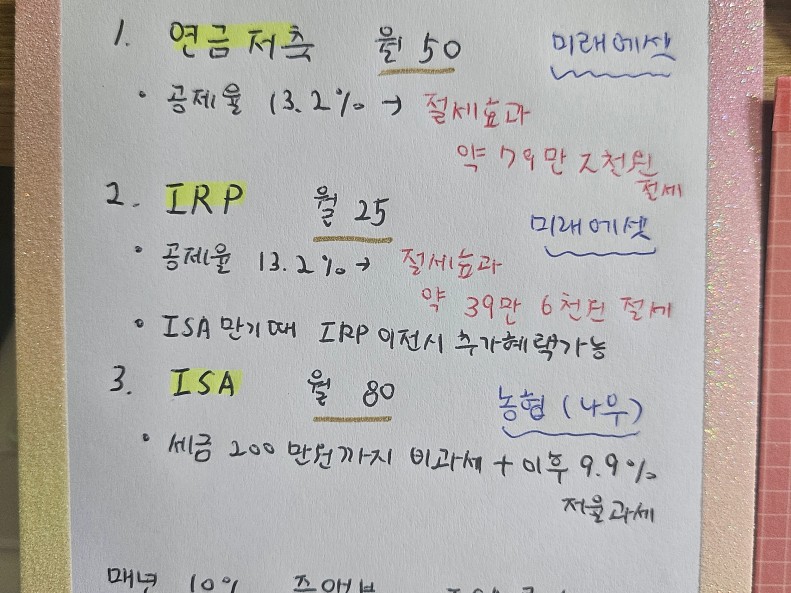 1. 연금저축 월 50 미래에셋
• 공제율 13.2% → 절세효과
약 79만 2천원
절세
2. IRP 월 25 미래에셋
• 공제율 13.2% → 절세효과
약 39만 6천원 절세
• ISA 만기때 IRP 이전시 추가혜택가능
3. ISA 월 80 농협 (나무)
• 세금 200만원까지 비과세 + 이후 9.9%
저율과세
매년 10%